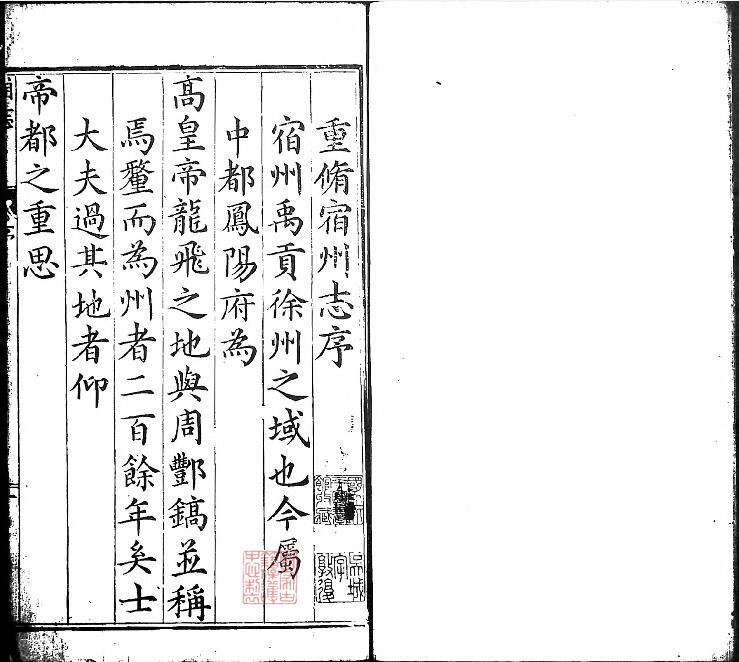 重脩宿州志序
宿州禹貢徐州之域也今屬
中都鳳陽府為
高皇帝龍飛之地與周酆鎬並稱
焉釐而為州者二百餘年矣士
大夫過其地者仰
帝都之重思